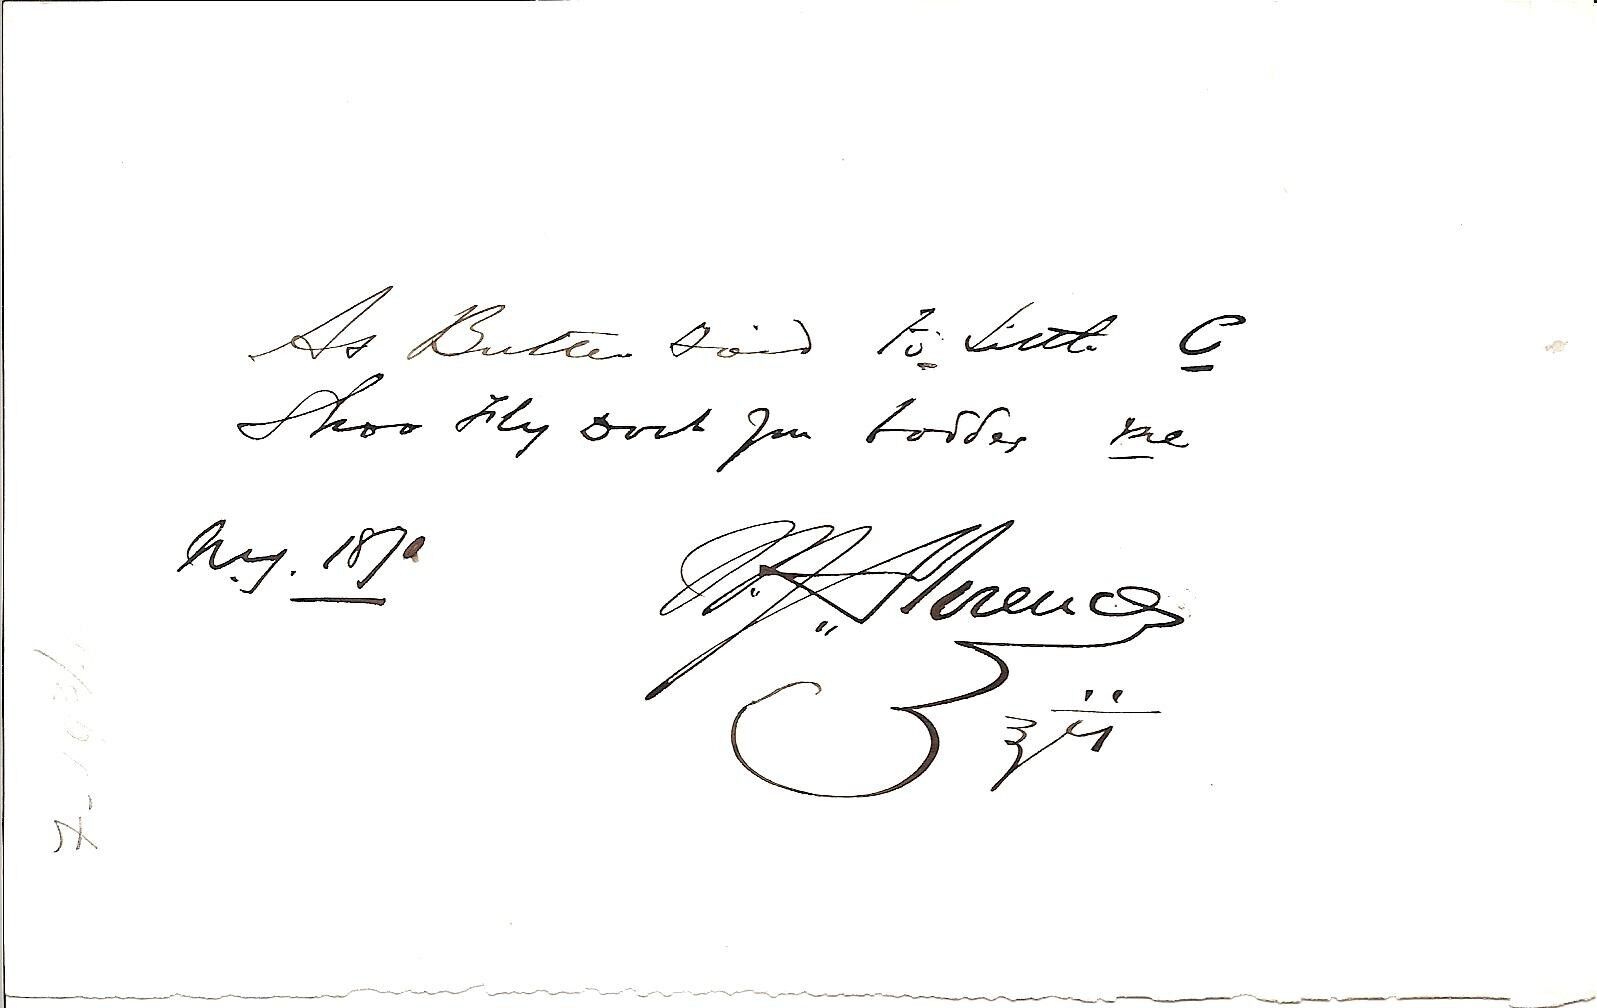 As Butler said to Little C
Shoo Fly dont you bodder me
Aug. 1870
W. J. Florence